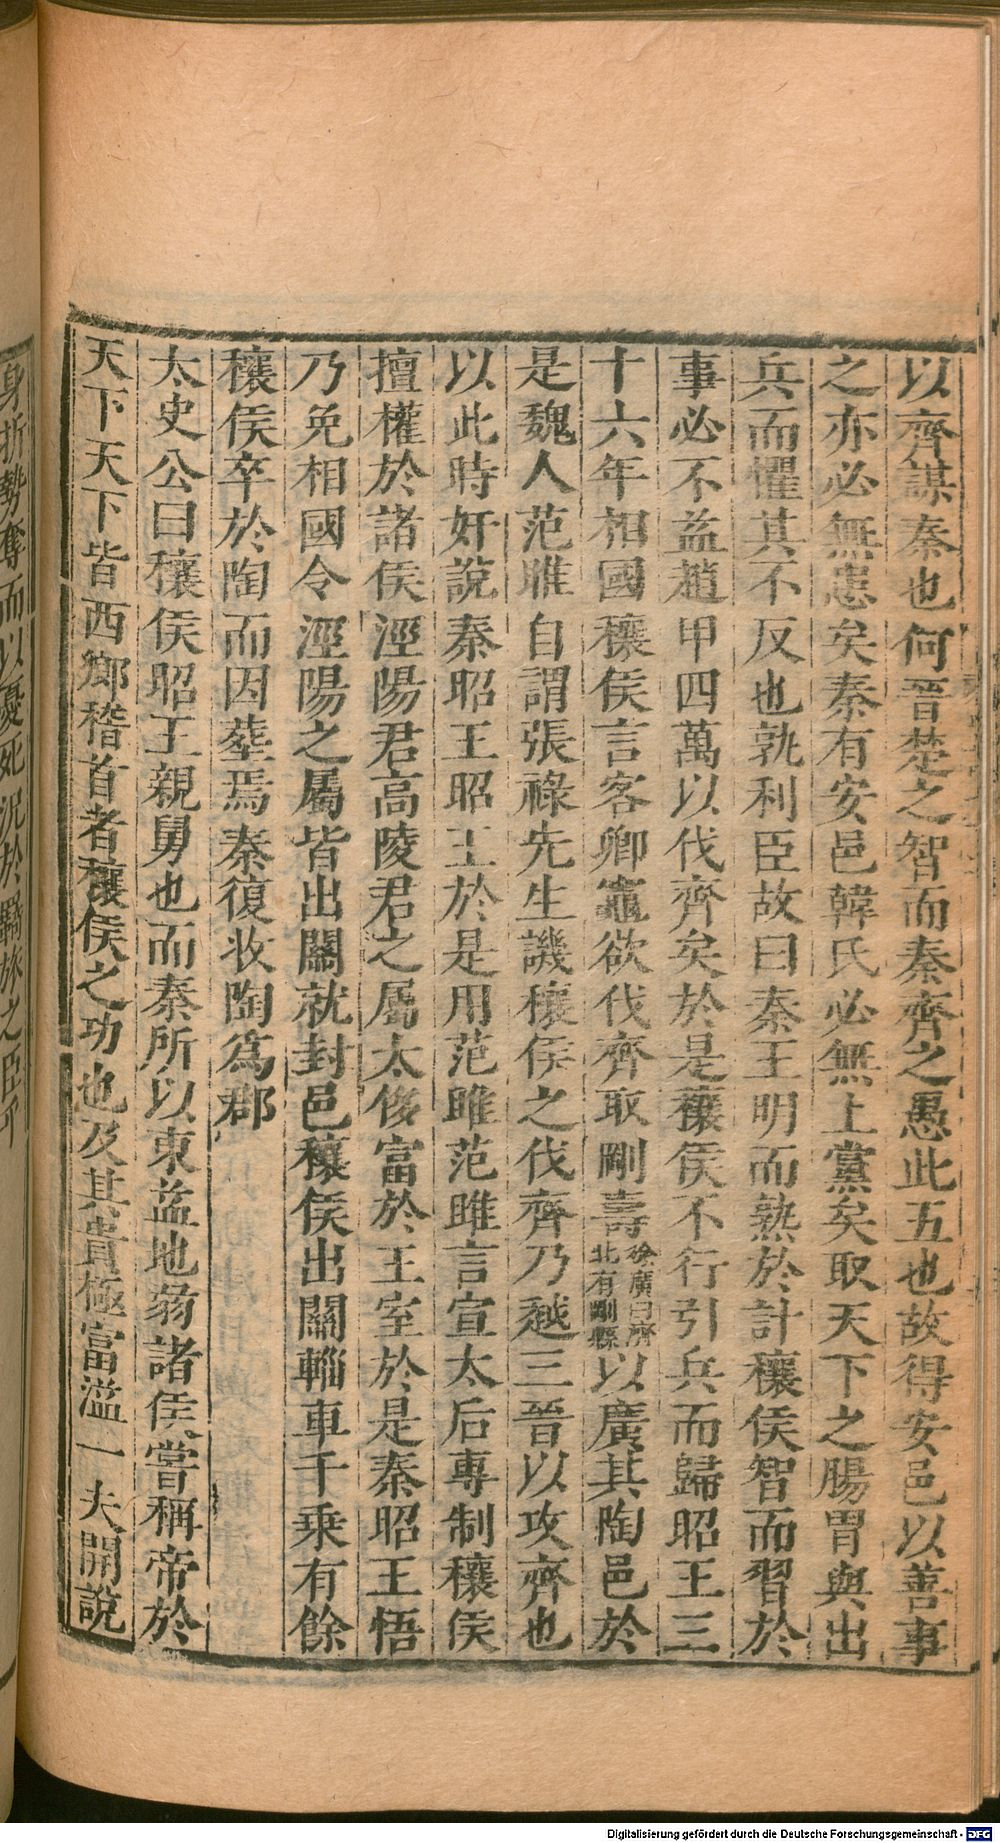 以齊謀秦也何晉楚之智而秦齊之愚此五也故得安邑以善事
之亦必無患矣秦有安邑韓氏必無上黨矣取天下之腸胃與出
兵而懼其不反也孰利臣故曰秦王明而熟於計穰侯智而習於
事必不益趙甲四萬以伐齊矣於是穰侯不行引兵而歸昭王三
十六年相國穰侯言客卿竈欲伐齊取剛壽徐廣曰濟北有剛縣以廣其陶邑於
是魏人范睢自謂張祿先生譏穰侯之伐齊乃越三晉以攻齊也
以此時奸說秦昭王昭王於是用范雎范雎言宣太后專制穰侯
擅權於諸侯涇陽君高陵君之屬太侈富於王室於是秦昭王悟
乃免相國令涇陽之屬皆出關就封邑穰侯出關輜車千乗有餘
穰侯卒於陶而因葬焉秦復收陶爲郡
太史公曰穰侯昭王親舅也而秦所以東益地弱諸侯嘗稱帝於
天下天下皆西鄉稽首者穰侯之功也及其貴極富溢一夫開說
身折勢奪而以憂死況於羈旅之臣乎
Digitalisierung gefördert durch die Deutsche Forschungsgemeinschaft - DFG